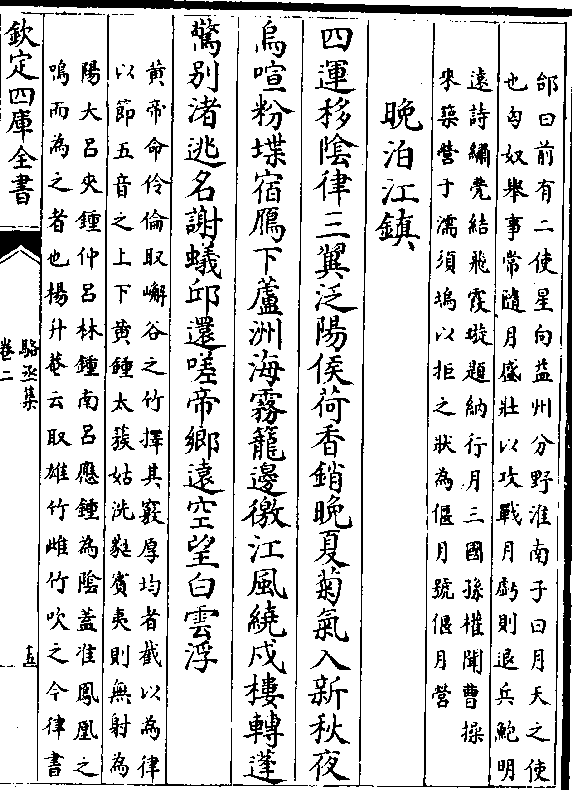 郃曰前有二使星向益州分野淮南子曰月天之使
也匈奴舉事常隨月盛壯以攻戰月虧則退兵鮑明
遠詩繡甍結飛霞璇題納行月三國孫權聞曹操
來築營于濡須塢以拒之狀為偃月號偃月營
晚泊江鎮
四運移陰律三翼泛陽侯荷香銷晚夏菊氣入新秋夜
烏喧粉堞宿鴈下蘆洲海霧籠邊徼江風繞戍樓轉蓬
驚别渚逃名謝蟻邱還嗟帝鄉遠空望白雲浮
黄帝命伶倫取嶰谷之竹擇其竅厚均者截以為律
以節五音之上下黄鍾太蔟姑洗蕤賓夷則無射為
陽大吕夾鍾仲吕林鍾南吕應鍾為陰蓋准鳳凰之
鳴而為之者也楊升菴云取雄竹雌竹吹之今律書
欽定四庫全書
駱丞集
卷二
十五